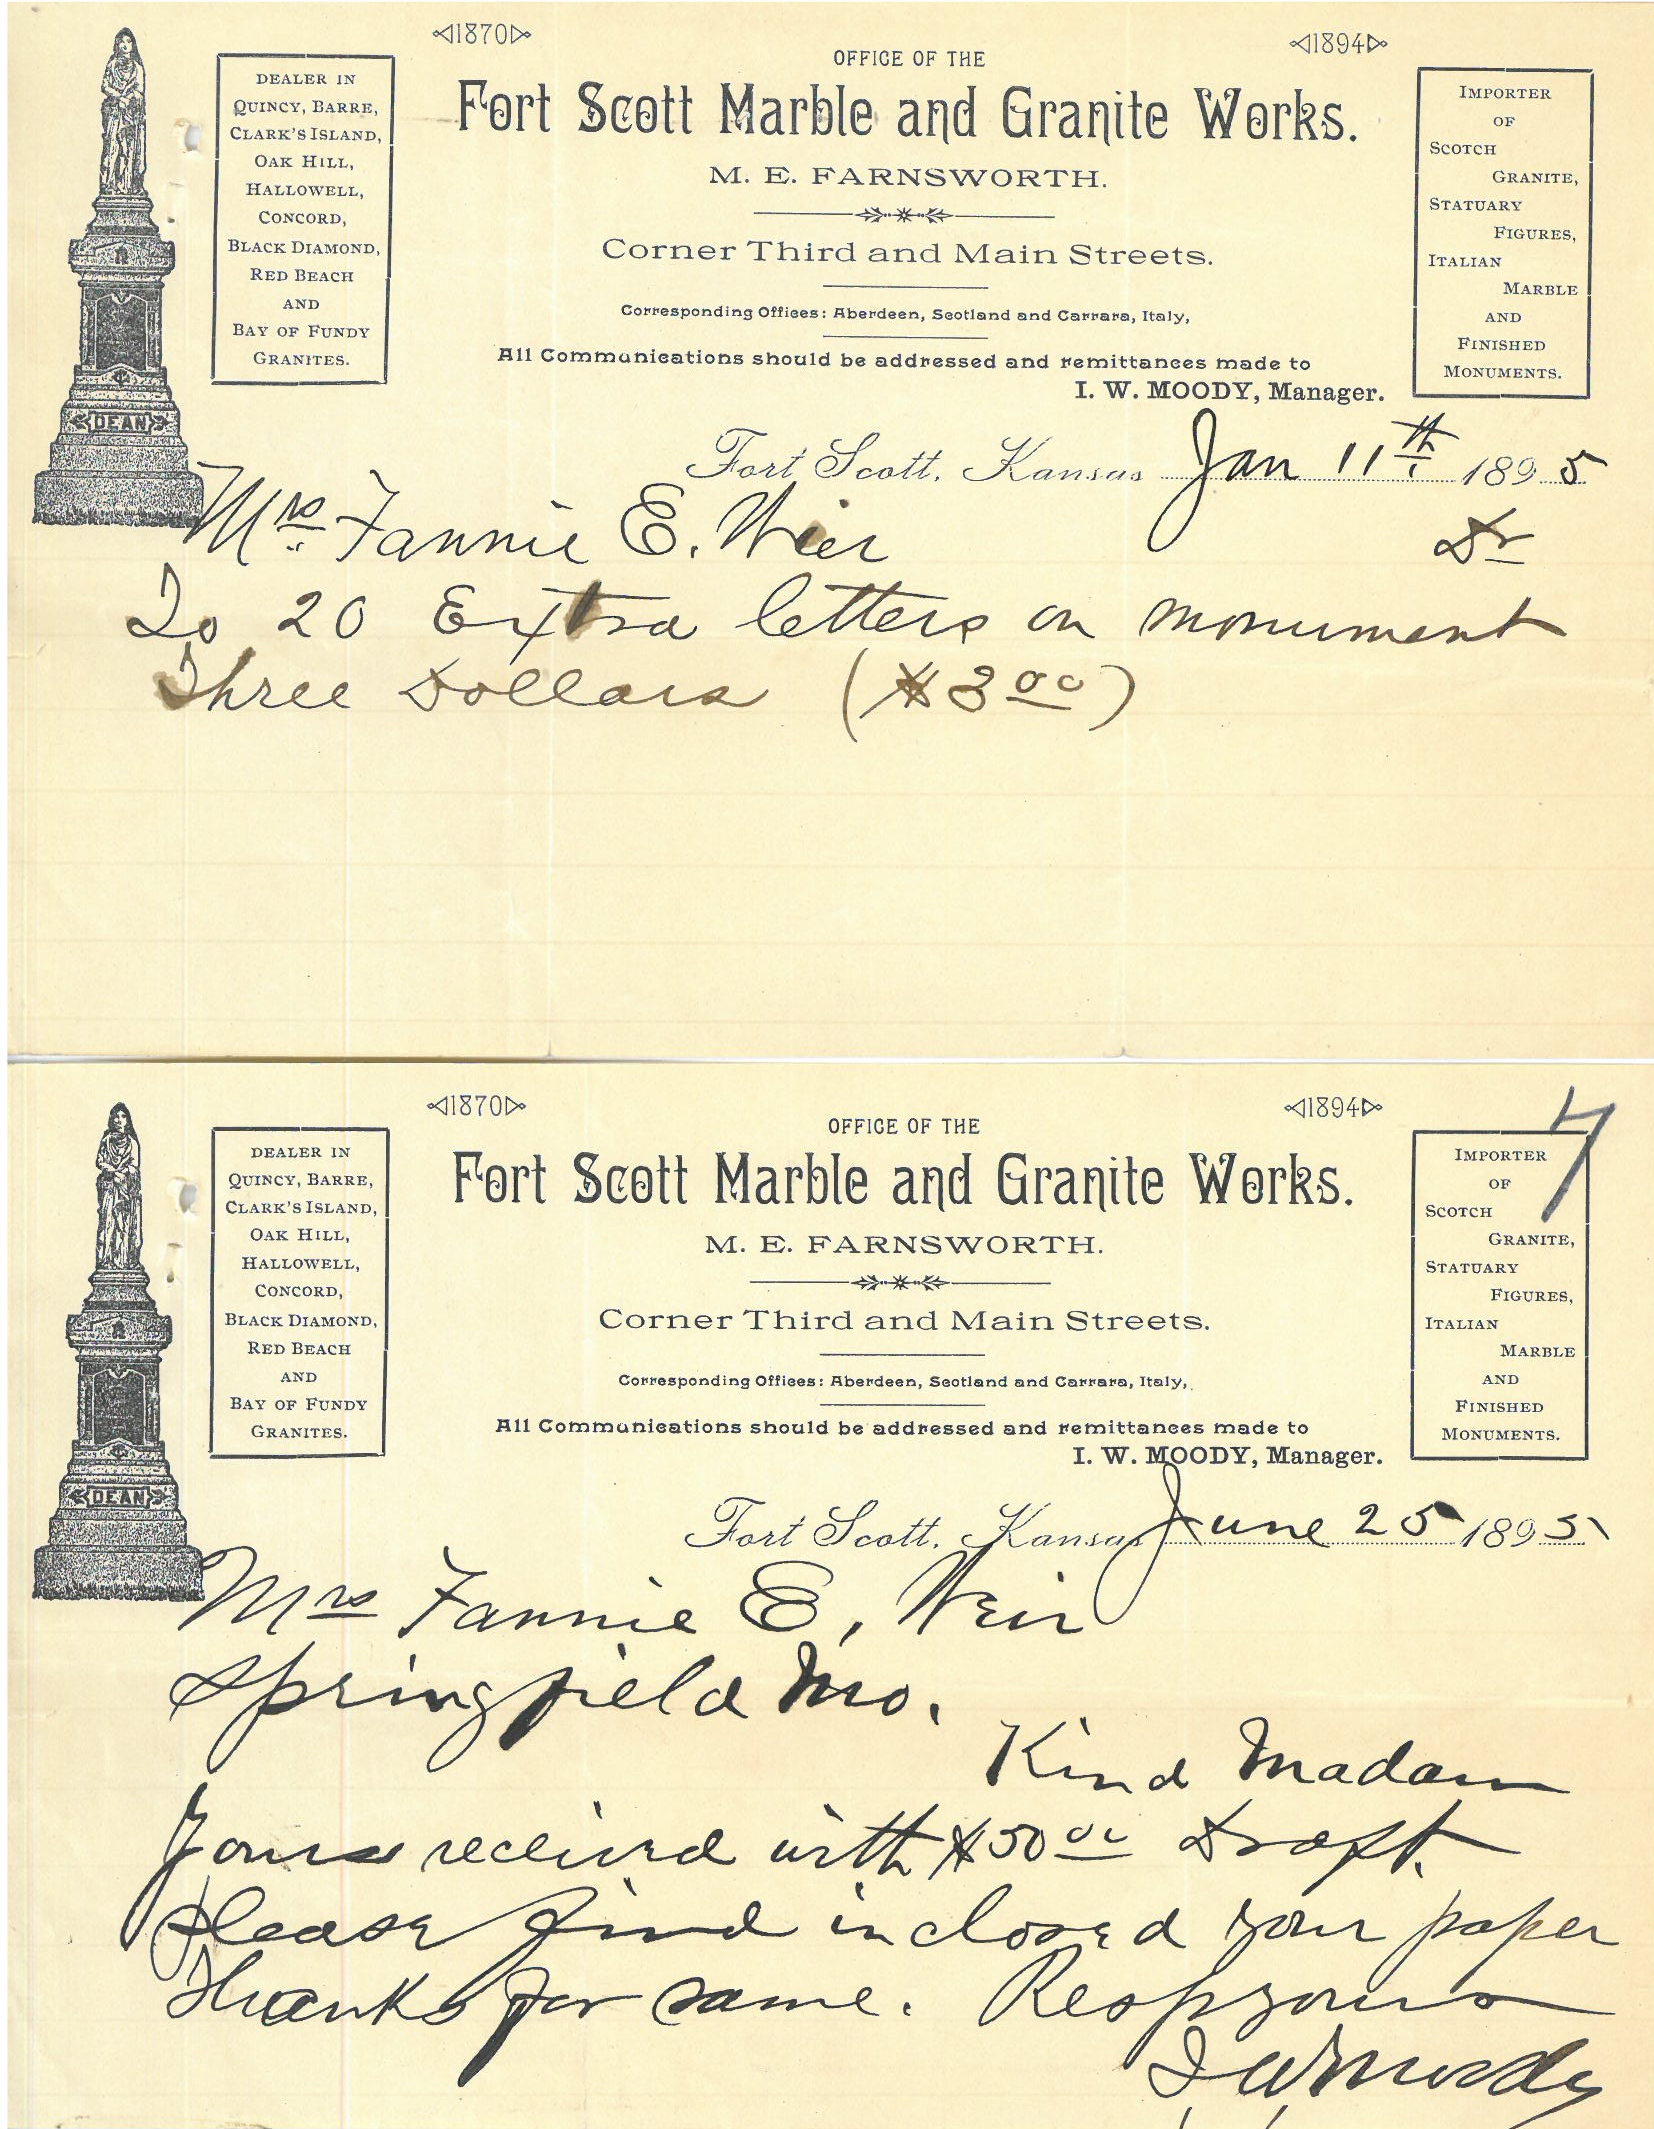 ◁1870▷
◁1894▷
OFFICE OF THE
Fort Scott Marble and Granite Works.
M. E. FARNSWORTH.
Corner Third and Main Streets.
Corresponding Offices: Aberdeen, Scotland and Carrara, Italy,
All Communications should be addressed and remittances made to
I. W. MOODY, Manager.
DEALER IN
QUINCY, BARRE,
CLARK'S ISLAND,
OAK HILL,
HALLOWELL,
CONCORD,
BLACK DIAMOND,
RED BEACH
AND
BAY OF FUNDY
GRANITES.
IMPORTER
OF
SCOTCH
GRANITE,
STATUARY
FIGURES,
ITALIAN
MARBLE
AND
FINISHED
MONUMENTS.
DEAN
Fort Scott, Kansas Jan 11th 1895
Mrs Fannie E. Weir Dr
To 20 Extra letters on monument
Three Dollars ($3 00)
◁1870▷
◁1894▷
7
OFFICE OF THE
Fort Scott Marble and Granite Works.
M. E. FARNSWORTH.
Corner Third and Main Streets.
Corresponding Offices: Aberdeen, Scotland and Carrara, Italy,
All Communications should be addressed and remittances made to
I. W. MOODY, Manager.
DEALER IN
QUINCY, BARRE,
CLARK'S ISLAND,
OAK HILL,
HALLOWELL,
CONCORD,
BLACK DIAMOND,
RED BEACH
AND
BAY OF FUNDY
GRANITES.
IMPORTER
OF
SCOTCH
GRANITE,
STATUARY
FIGURES,
ITALIAN
MARBLE
AND
FINISHED
MONUMENTS.
DEAN
Fort Scott, Kansas June 25 1895
Mrs Fannie E, Weir
Springfield Mo.
Kind Madam
Yours received with $50 00 Draft.
Please find inclosed your paper
Thanks for same. Resp yours
I. W. Moody